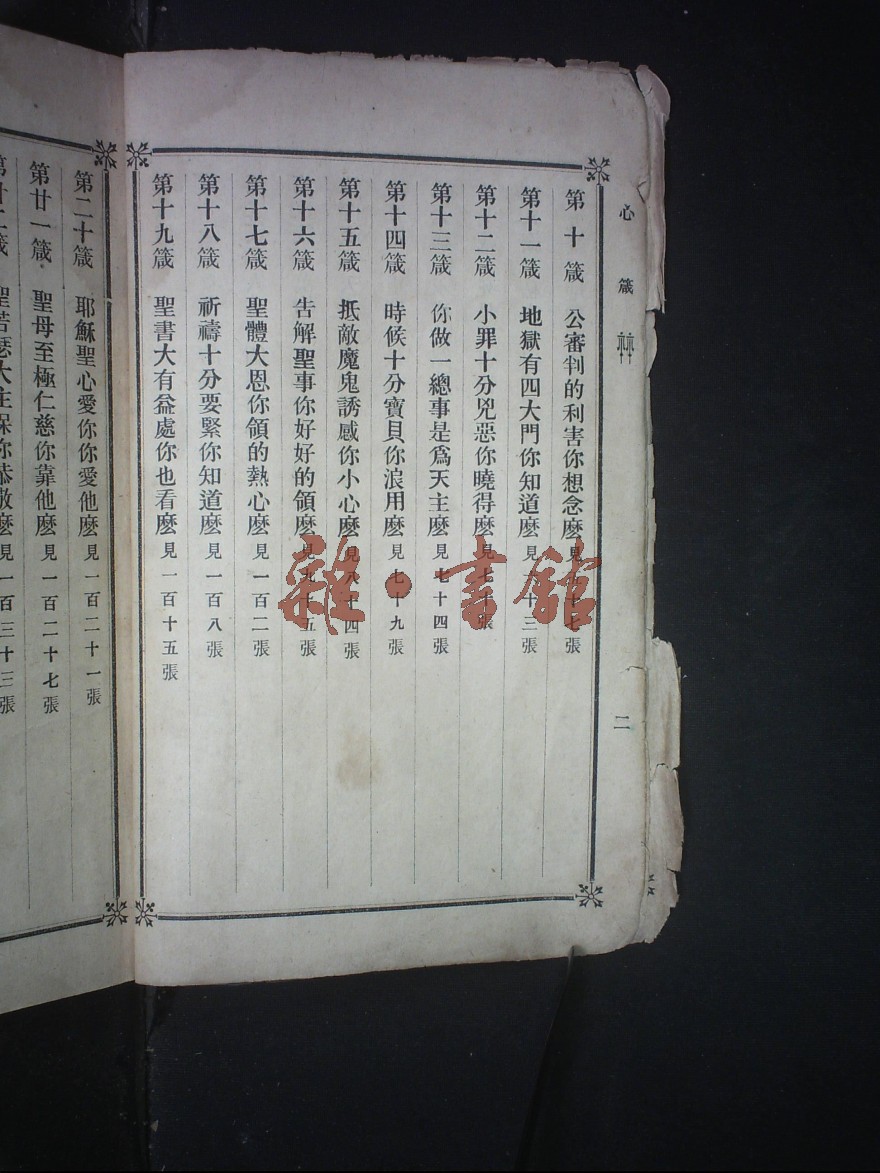 心箴
二
第十箴 公審判的利害你想念麽 見
第十一箴 地獄有四大門你知道麽 見六十三張
第十二箴 小罪十分兇惡你曉得麽 見七十張
第十三箴 你做一總事是爲天主麽 見七十四張
第十四箴 時候十分寶貝你浪用麽 見七十九張
第十五箴 抵敵魔鬼誘感你小心麽 見八十四張
第十六箴 告解聖事你好好的領麽 見九十五張
第十七箴 聖體大恩你領的熱心麽 見一百二張
第十八箴 祈禱十分要緊你知道麽 見一百八張
第十九箴 聖書大有益處你也看麽 見一百十五張
第二十箴 耶穌聖心愛你你愛他麽 見一百二十一張
第廿一箴 聖母至極仁慈你靠他麽 見一百二十七張
第廿二箴 聖若瑟大主保你恭敬麽 見一百三十三張
雜·書館